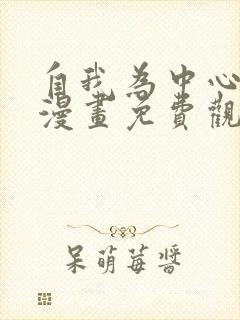 自我為中心
漫畫免費觀
呆萌莓醬